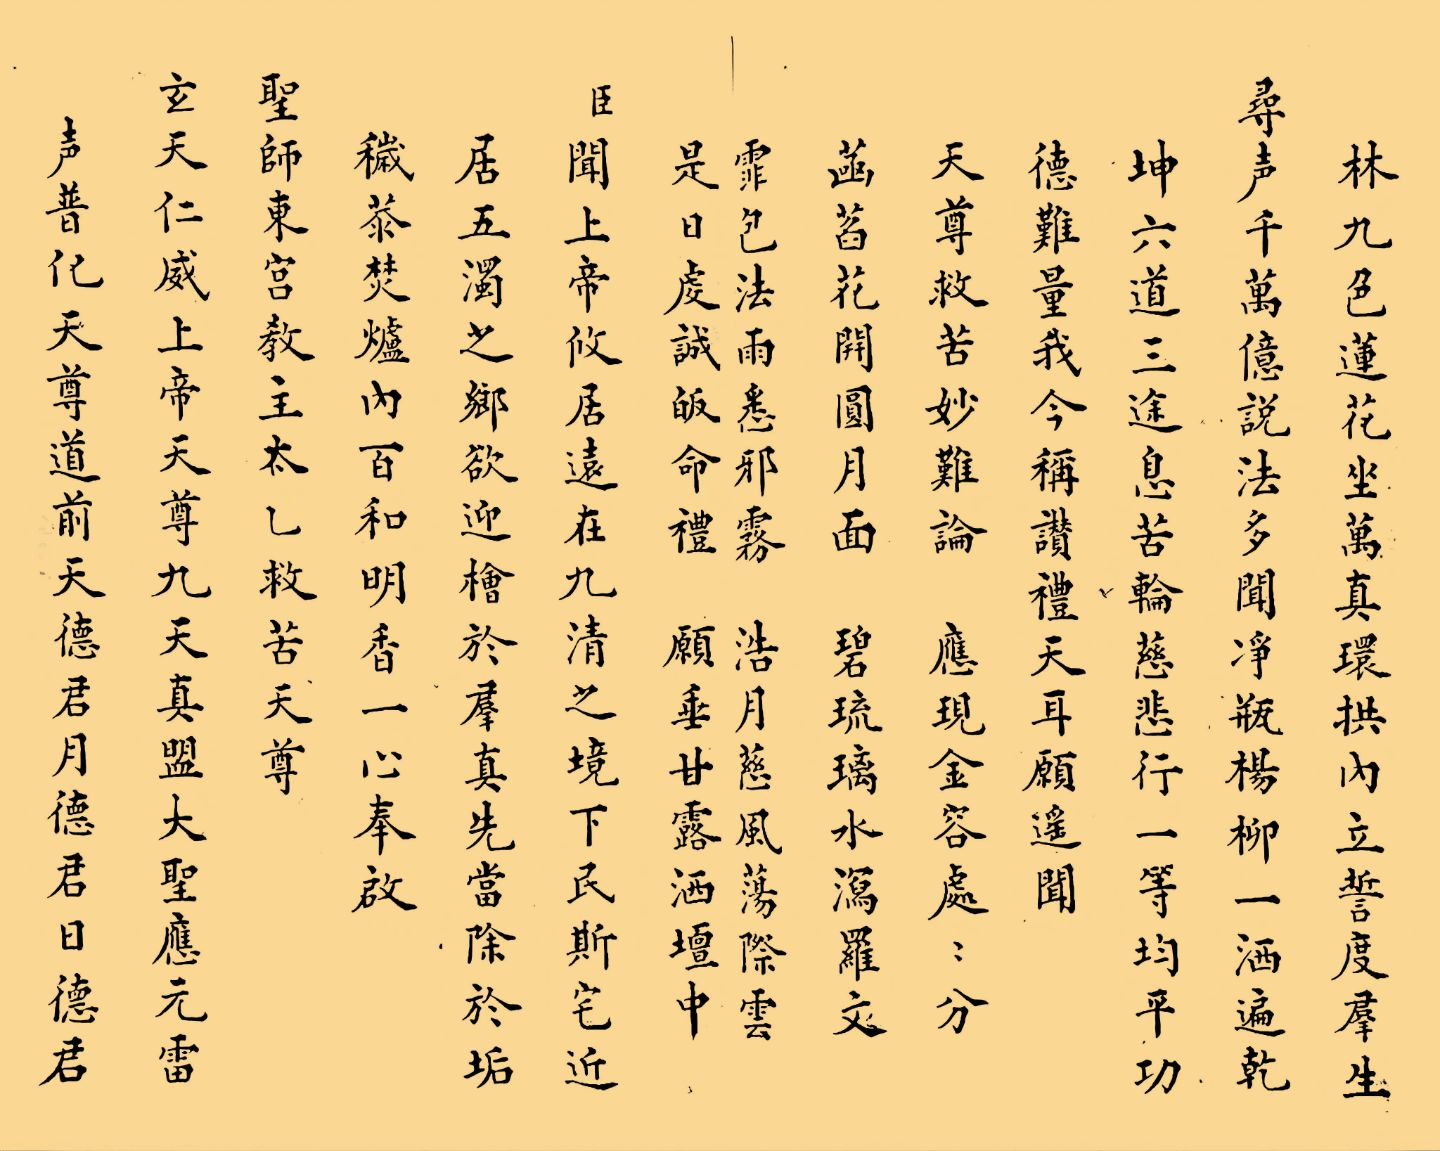 林九色蓮花坐萬真環拱內立誓度羣生
尋声千萬億説法多聞凈瓶楊柳一洒遍乾
坤六道三途息苦輪慈悲行一等均平功
德難量我今稱讃禮天耳願遥聞
天尊救苦妙難論　應現金容處〻分
菡萏花開圓月面　碧琉璃水瀉羅文
霏包法雨悉邪霧　浩月慈風蕩際雲
是日虔誠皈命禮　願垂甘露洒壇中
臣聞上帝攸居遠在九清之境下民斯宅近
居五濁之鄉欲迎檜於羣真先當除於垢
穢恭焚爐內百和明香一心奉啟
聖師東宫教主太乙救苦天尊
玄天仁威上帝天尊九天真盟大聖應元雷
声普化天尊道前天德君月德君日德君